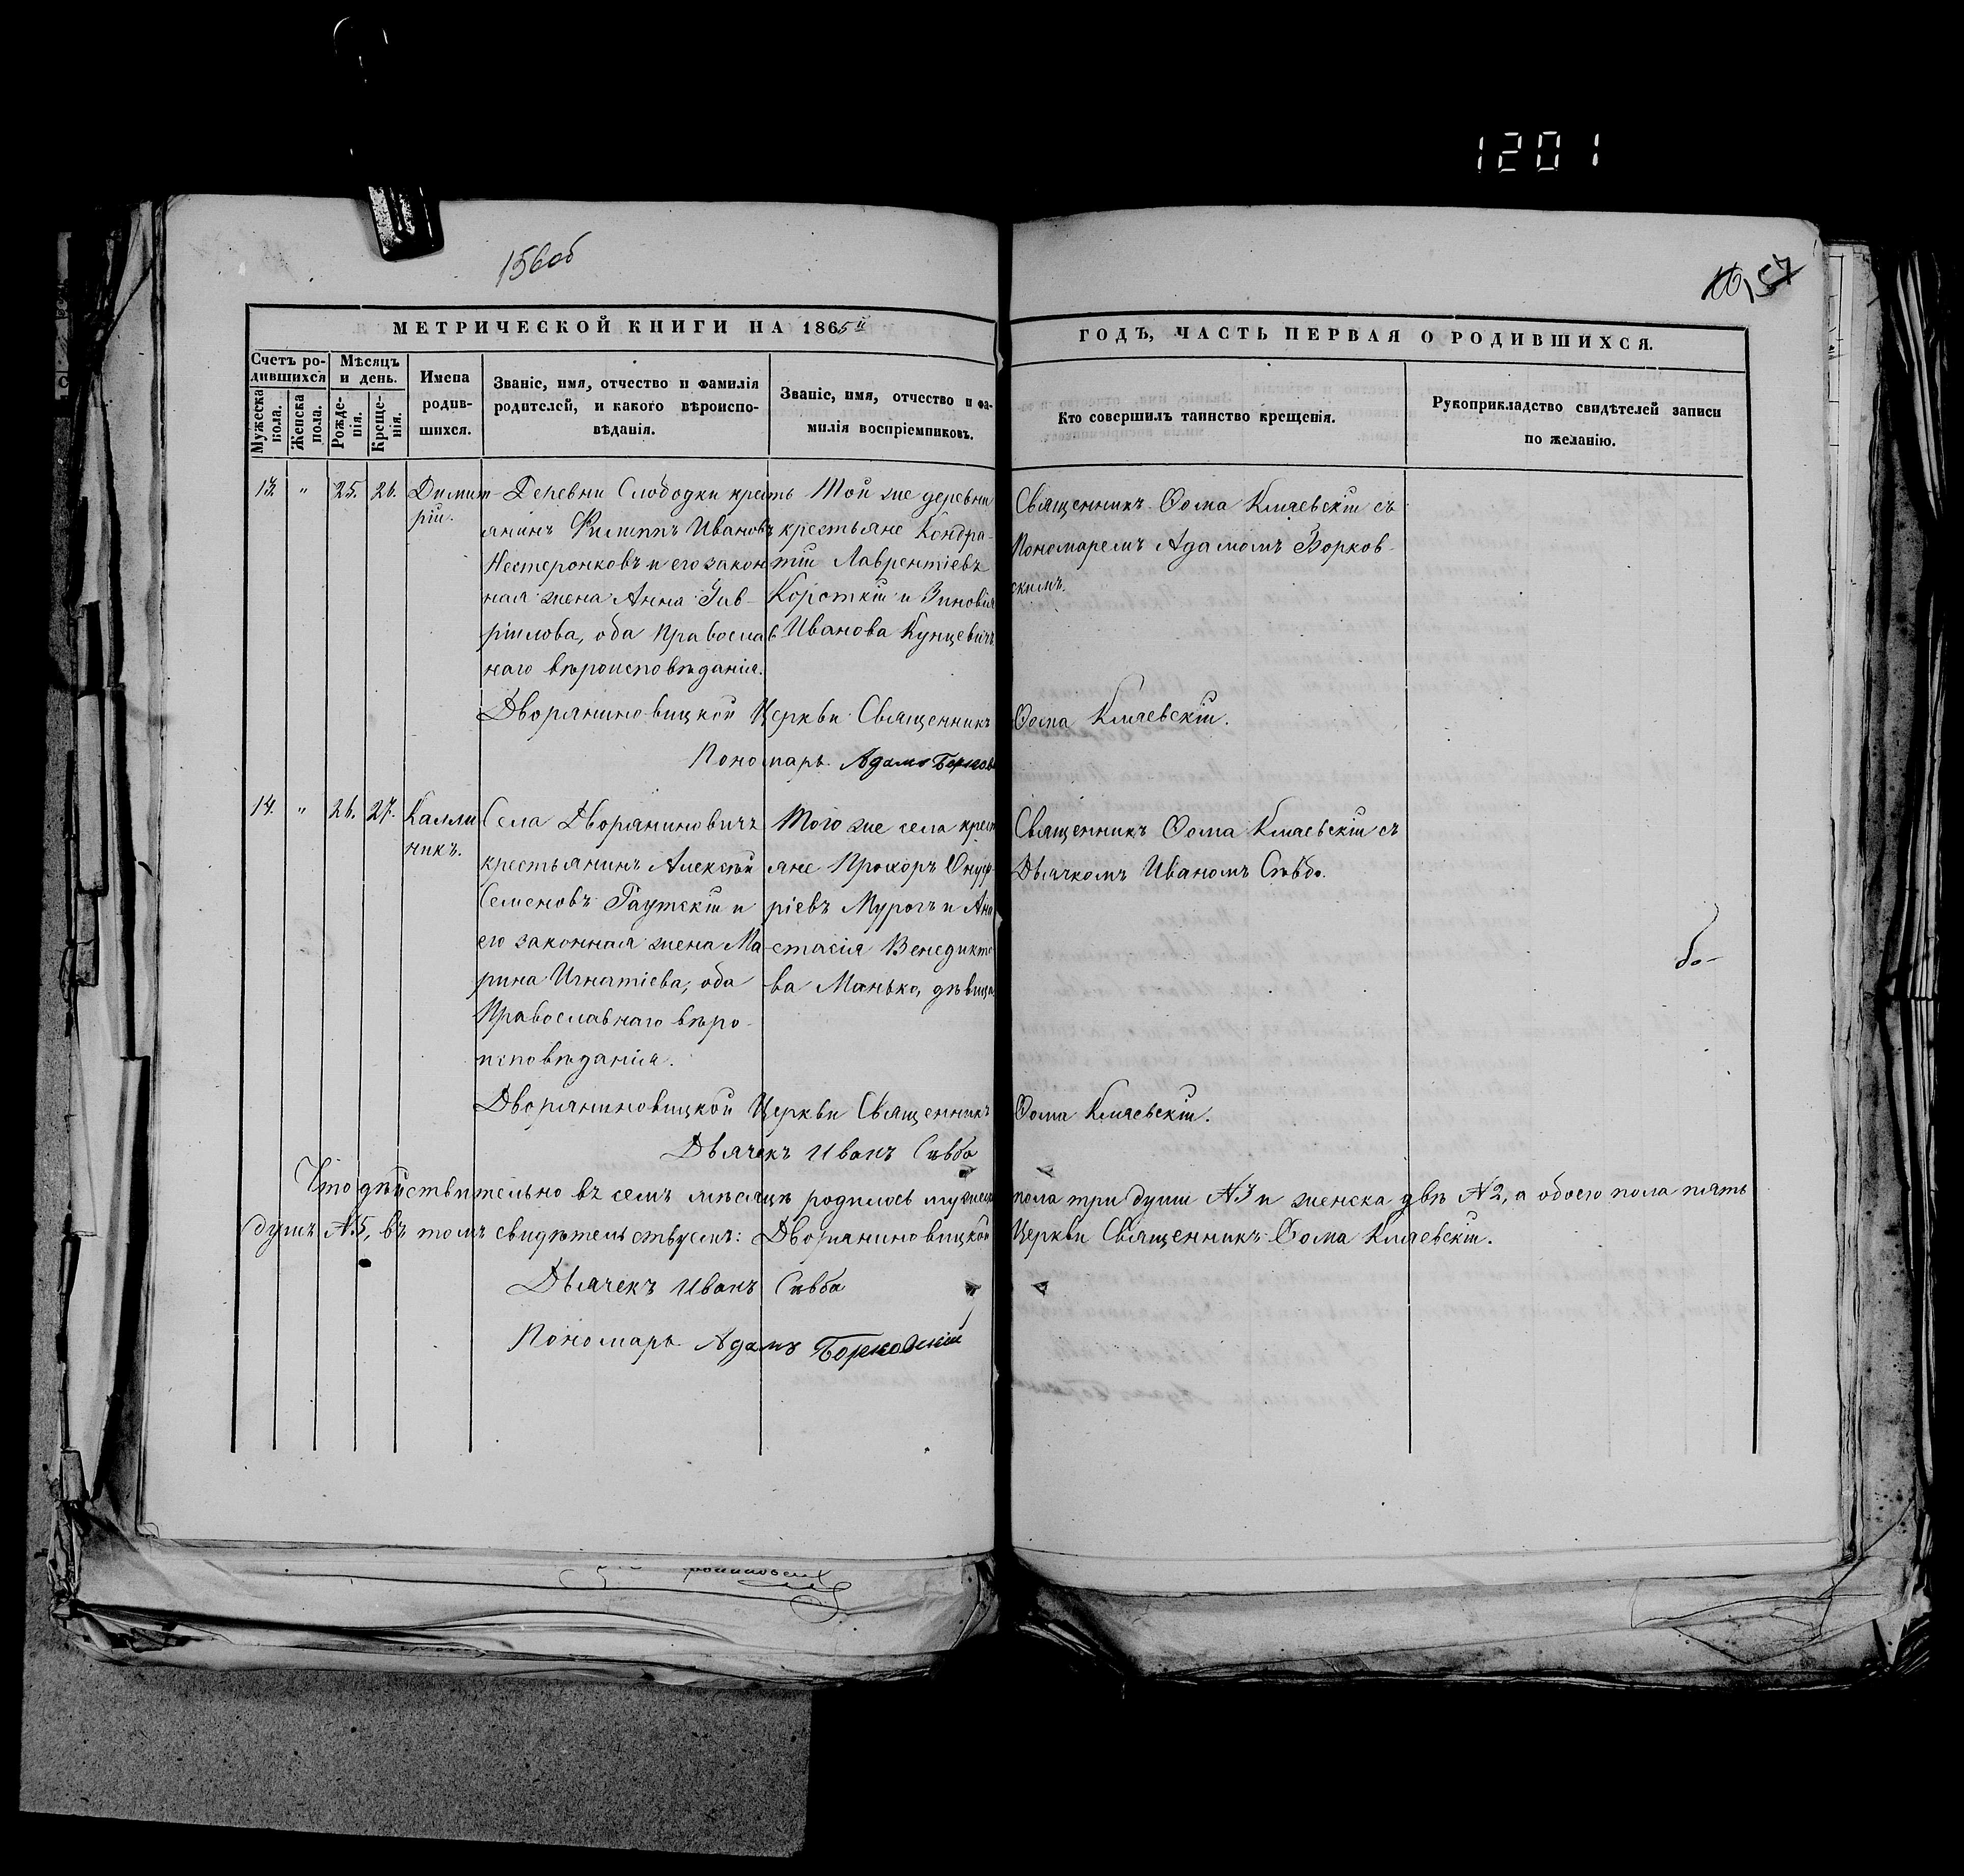 1201
156об
157
МЕТРИЧЕСКОЙ КНИГИ НА 1865й
ГОДЪ, ЧАСТЬ ПЕРВАЯ О РОДИВШИХСЯ.
Счетъ ро-
дившихся
Мужеска
пола.
Женска
пола.
Мѣсяцъ
и день.
Рожде-
нія.
Креще-
нія.
Имена
родив-
шихся.
Званіе, имя, отчество и фамилія
родителей, и какого вѣроиспо-
вѣданія.
Званіе, имя, отчество и фа-
милія воспріемниковъ.
Кто совершилъ таинство крещенія.
Рукоприкладство свидѣтелей записи
по желанію.
13. " 25. 26.
Димит-
рій.
Деревни Слободки кресть
янинъ Филиппъ Ивановъ
Нестеронковъ и его закон
ная жена Анна Гав-
ріилова, оба Православ
наго вѣроисповѣданія.
Той же деревни
крестьяне Кондра-
тій Лаврентіевъ
Короткій и Зиновія
Иванова Кунцевичъ
Священникъ Ѳома Кмаевскій съ
Пономаремъ Адамомъ Борков-
скимъ.
Дворяниновицкой Церкви Священникъ Ѳома Кмаевскій.
Пономарь Адамъ Борков
14. " 26. 27.
Калли
никъ.
Села Дворяниновичъ
крестьянинъ Алексѣй
Семеновъ Гаутскій и
его законная жена Ма-
рина Игнатіева, оба
Православнаго вѣро-
исповѣданія.
Того же села крест
яне Прохоръ Онуф-
ріевъ Мурогъ и Ана
стасія Венедикто
ва Манько, дѣвица
Священникъ Ѳома Кмаевскій съ
Дьячкомъ Иваномъ Сѣвбо.
Дворяниновицкой Церкви Священникъ Ѳома Кмаевскій.
Дьячекъ Иванъ Сѣвбо
Что дѣйствительно въ семъ мѣсяцѣ родилось мужеска пола три души №3 и женска двѣ №2, а обоего пола пять
душъ №5, въ томъ свидѣтельствуемъ: Дворяниновицкой Церкви Священникъ Ѳома Кмаевскій.
Дьячекъ Иванъ Сѣвбо
Пономарь Адамъ Борковскій